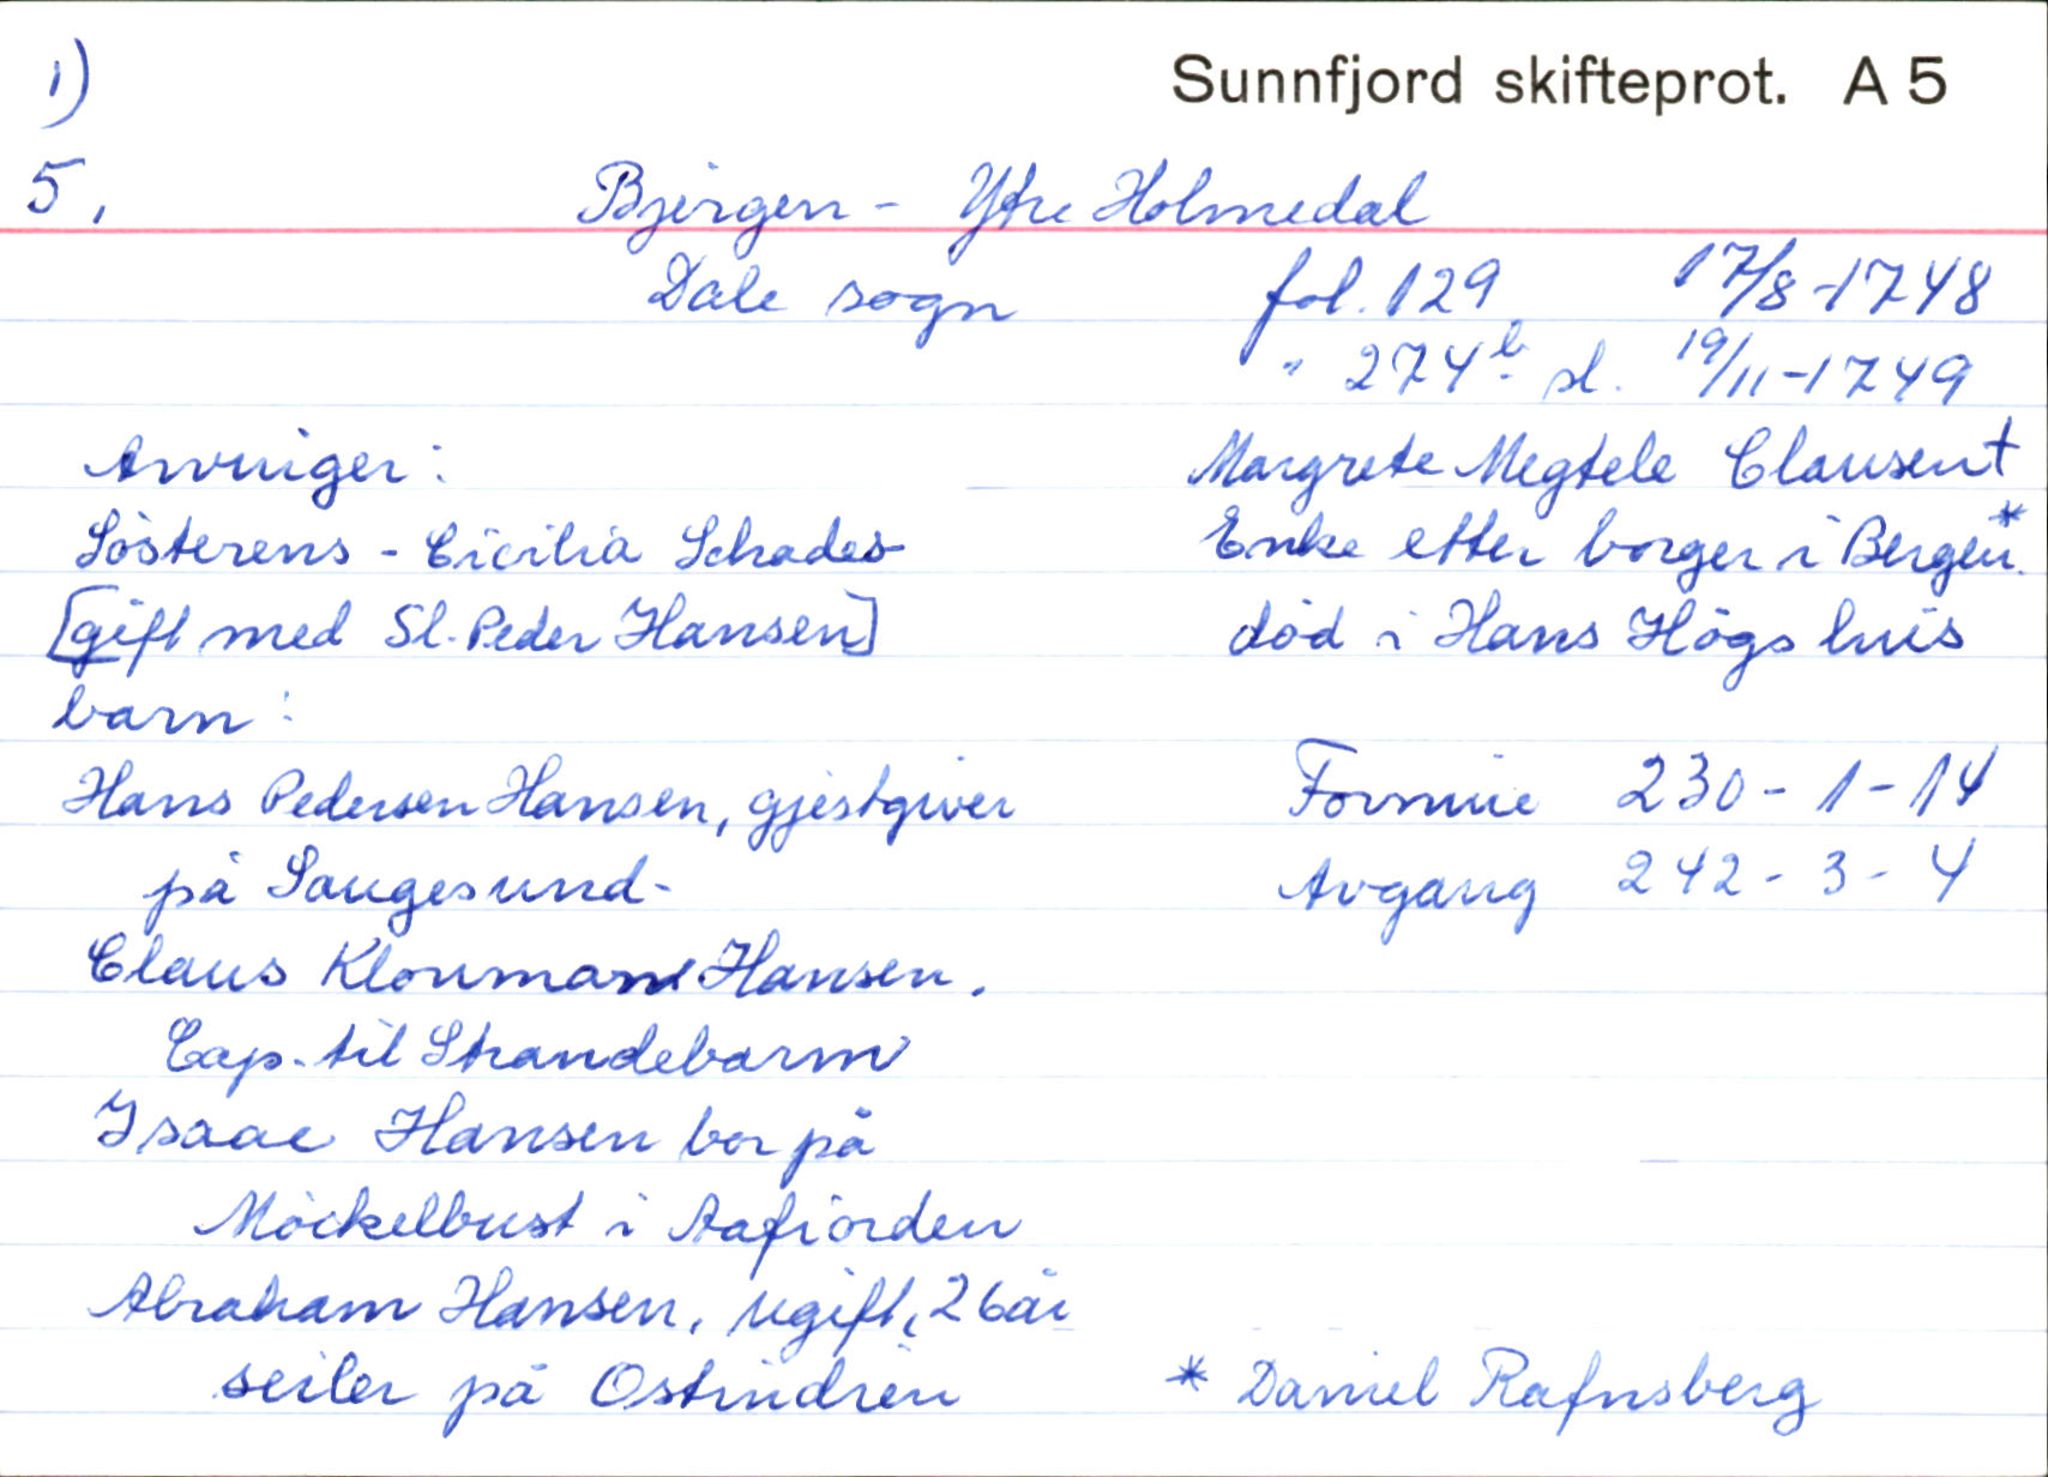 1)
Sunnfjord skifteprot. A 5
5, Bjergen - Ytre Holmedal
Dale sogn fol. 129 17/8 -1748
" 274b sl. 19/11-1749
Arvinger:
Søsterens - Cicilia Schades
[gift med Sl. Peder Hansen]
barn:
Hans Pedersen Hansen, gjestgiver
på Saugesund-
Claus Kloumann Hansen.
Cap. til Strandebarm
Isaac Hansen bor på
Möckelbust i Aafiorden
Abraham Hansen, ugift, 26år
seiler på Ostindien
Margrete Megtele Clausen†
Enke etter borger i Bergen.*
død i Hans Høgs hus
Formue 230 - 1 - 14
Avgang 242 - 3 - 4
* Daniel Rafnsberg